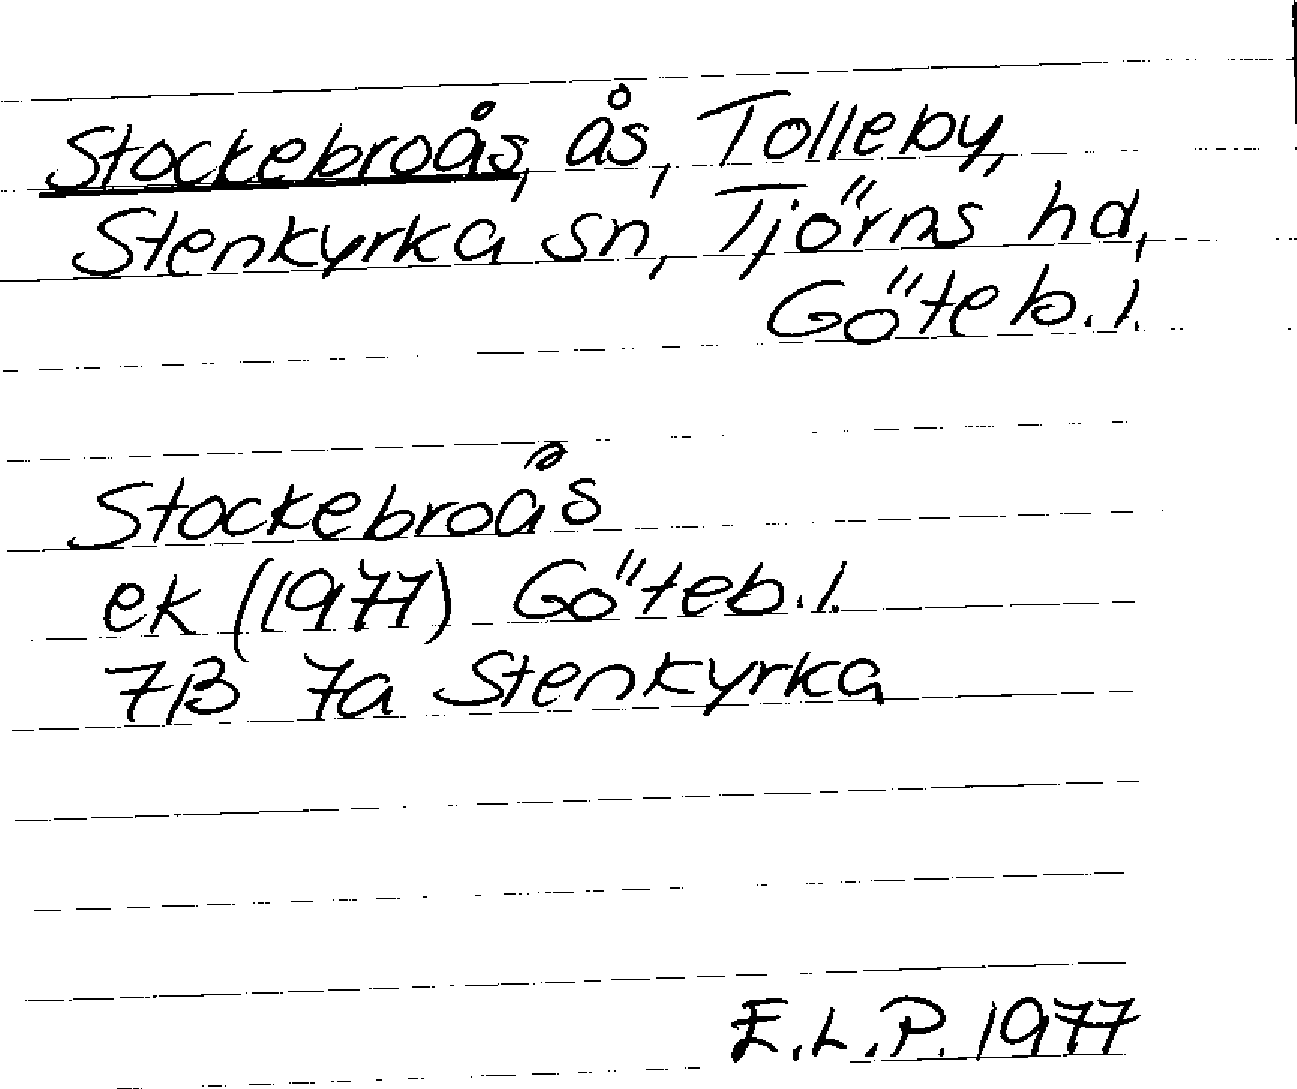 Stockebroås, ås, Tolleby,
Stenkyrka sn, Tjörns hd,
Göteb. l.
Stockebroås
ek (1977) Göteb. l.
7B 7a Stenkyrka
E.L.P. 1977